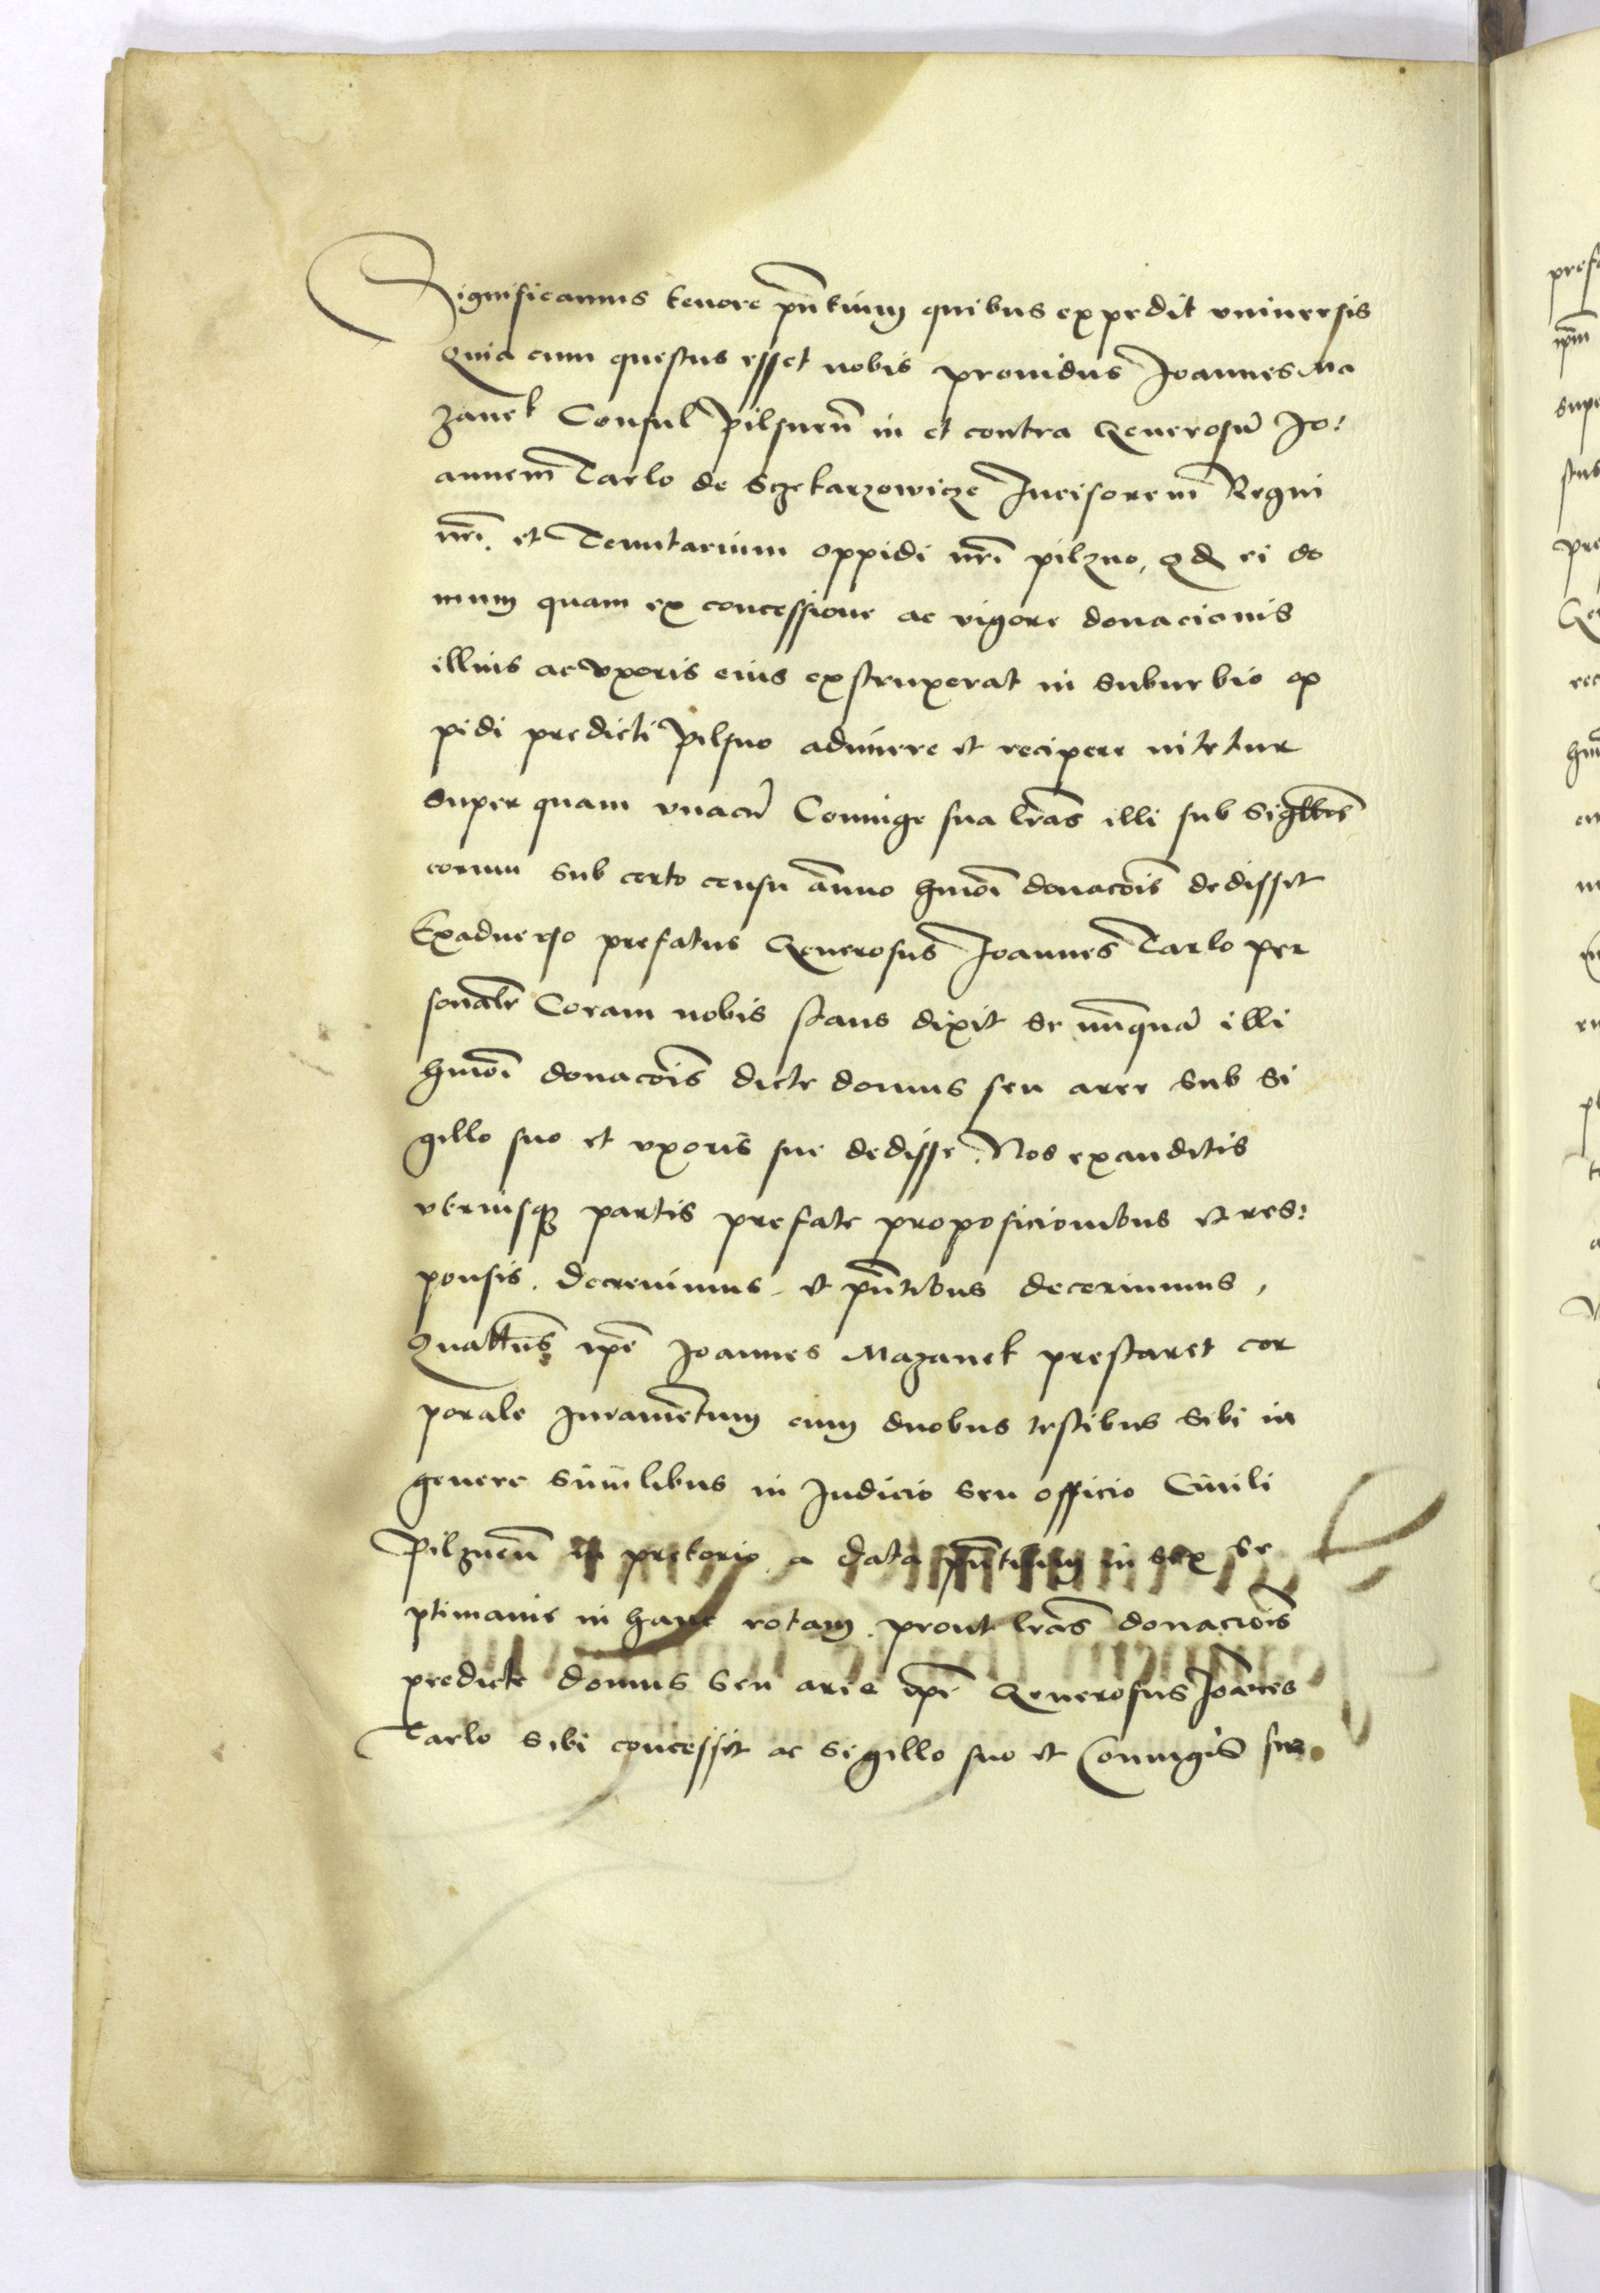 Significamus tenore pñtium quibus expedit vniuersis
Quia cum questus esset nobis prouidus Joannes Ma
zanek Consul Pilsnen̄ in et contra Generosū Jo:
annem Tarlo de Sczekarzowicze Incisorem Regni
nr̄i. et Tenutarium oppidi nr̄i pilzno, qd ei do
mum quam ex concessione ac vigore donacionis
illius ac vxoris eius exstruxerat in suburbio op
pidi predicti Pilsno adimere et recipere nitetur
super quam vnacū Coniuge sua lr̄as illi sub Sigillis
eorum sub certo censu ānuo hmōi donacōis dedisset
Exaduerso prefatus Generosus Joannes Tarlo per
sonalr̄ Coram nobis stans dixit se nūnquā illi
hmōi donacōis dicte domus seu aree sub Si
gillo suo et vxoris sue dedisse. Nos exauditis
vtriusq3 partis prefate proposicionibus et res:
ponsis. decreuimus. et pñtibus decernimus,
Quatenus ip̄e Joannes Mazanek prestaret cor
porale Iuramētum cum duobus testibus sibi in
genere similibus in Judicio seu officio Ciuili
Pilznen̄ in pretorio a data pñtium in sex se
ptimanis in hanc rotam. prout lr̄as donaciōis
predicte domus seu aree ip̄e Generosus Joānes
Tarlo sibi concessit ac sigillo suo et Coniugis sue